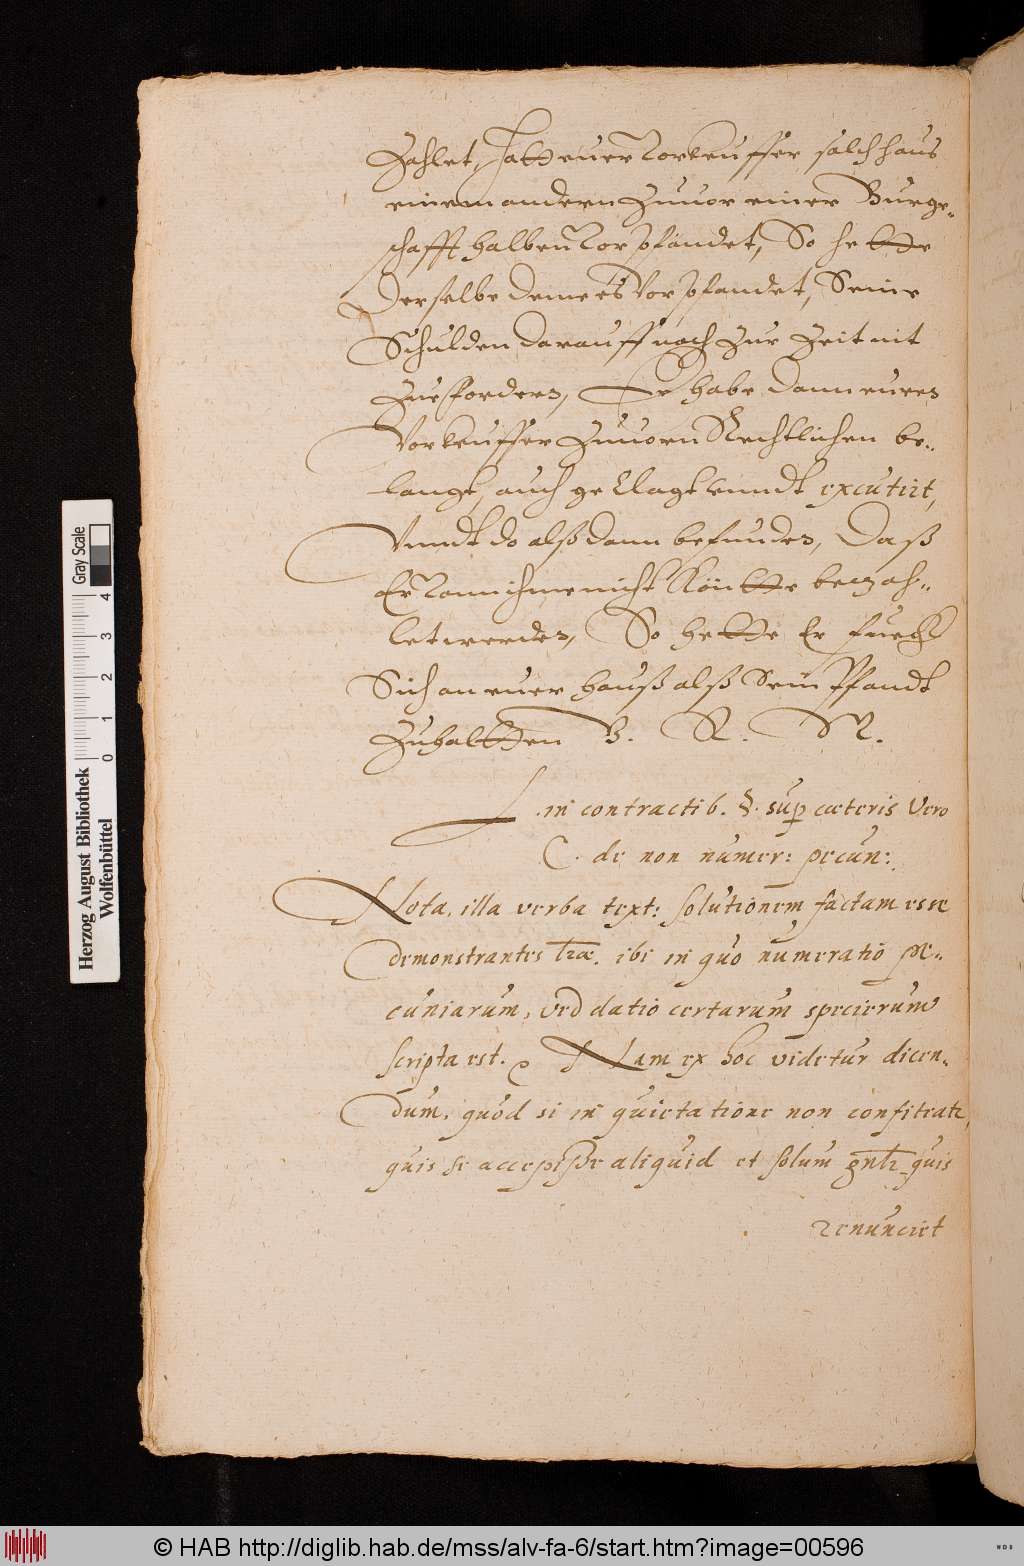 Zahlet, Hatt euer Vorkeuffer solch haus
einem andern Zuuor einer Burge-
schafft halben Vorpfändet, So hette
derselbe deme es Vorpfandet, Seine
Schulden darauff noch Zur Zeit nit
Zue fordern, Er habe dann euren
Vorkeuffer Zuuorn Rechtlichen be-
langt, auch geklagt vnndt excutirt,
Vnndt do alß dann befunden, Daß
Er Vonn ihme nicht Kön̄tte bezah-
let werden, So hette Er
Sich an euer hauß alß Sein Pfandt
Zuhaltten V. R. W.
L. in contractib. §. sup caeteris Vero
C. de non numer: pecun:
Nota, illa verba text: solutionem factam esse
demonstrantes lrae. ibi in quo numeratio pe-
cuniarum, vel datio certarum specierum
scripta est. Nam ex hoc videtur dicen-
dum, quod si in quietatione non confiteatr,
quis se accepisse aliquid et solum gnlr quis
renunciet
Herzog August Bibliothek
Wolfenbüttel
0 1 2 3 4
Gray Scale
© HAB http://diglib.hab.de/mss/alv-fa-6/start.htm?image=00596
WDB